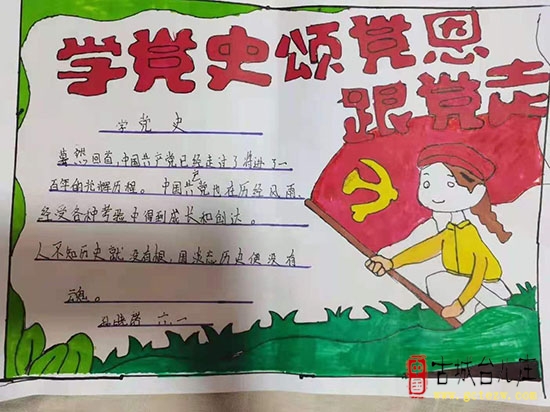 学党史 颂党恩
跟党走
学党史
蓦然回首,中国共产党已经走过了将进了一
百年的光辉历程。中国共党也在历经风雨、
经受各种考验中得到成长和创达。
人不知历史就没有根,国淡忘历史便没有
魂。
六一
古城台儿庄
www.gctezw.com